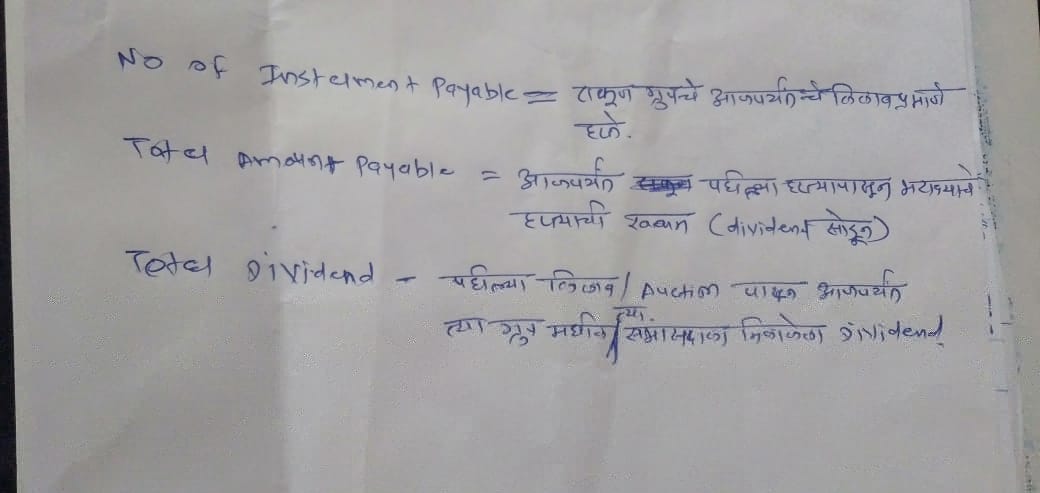 No of Instelment Payable = एकूण ग्रुपचे आजपर्यंतचे लिलावप्रमाणे
हप्ते.
Total Amount Payable = आजपर्यंत पहिल्या हप्त्यापासून भरावयाचे
हप्त्याची रक्कम (dividend सोडून)
Total Dividend - पहिल्या लिलाव / Auction पासून आजपर्यंत
त्या ग्रुप मधील त्या. सभासदाला निघालेला Dividend